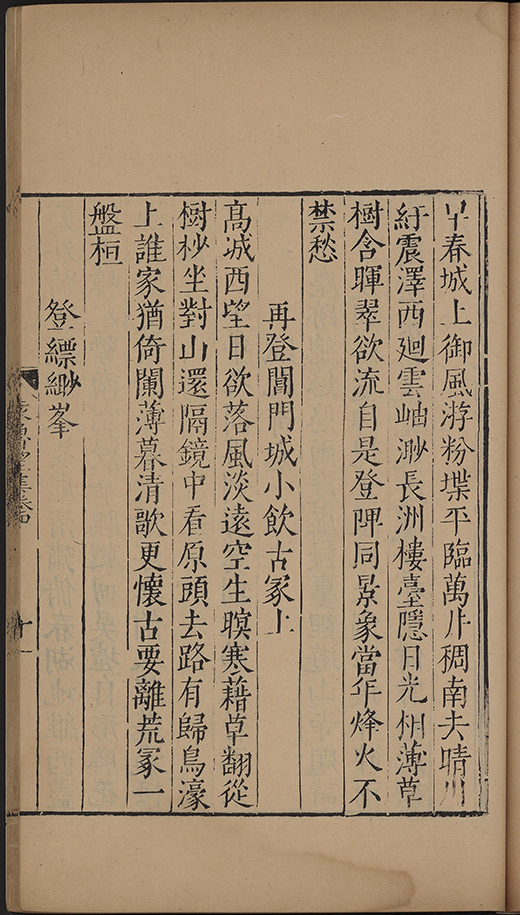 早春城上御風游粉堞平臨萬井稠南去晴川
紆震澤西廻雲岫渺長洲樓臺隱日光相薄草
樹含暉翠欲流自是登陴同景象當年烽火不
禁愁
再登閶門城小飲古冢上
髙城西望日欲落風淡遠空生暝寒藉草翻從
樹杪坐對山還隔鏡中看原頭去路有歸鳥濠
上誰家猶倚闌薄暮清歌更懷古要離荒冢一
盤桓
登縹緲峯
十一